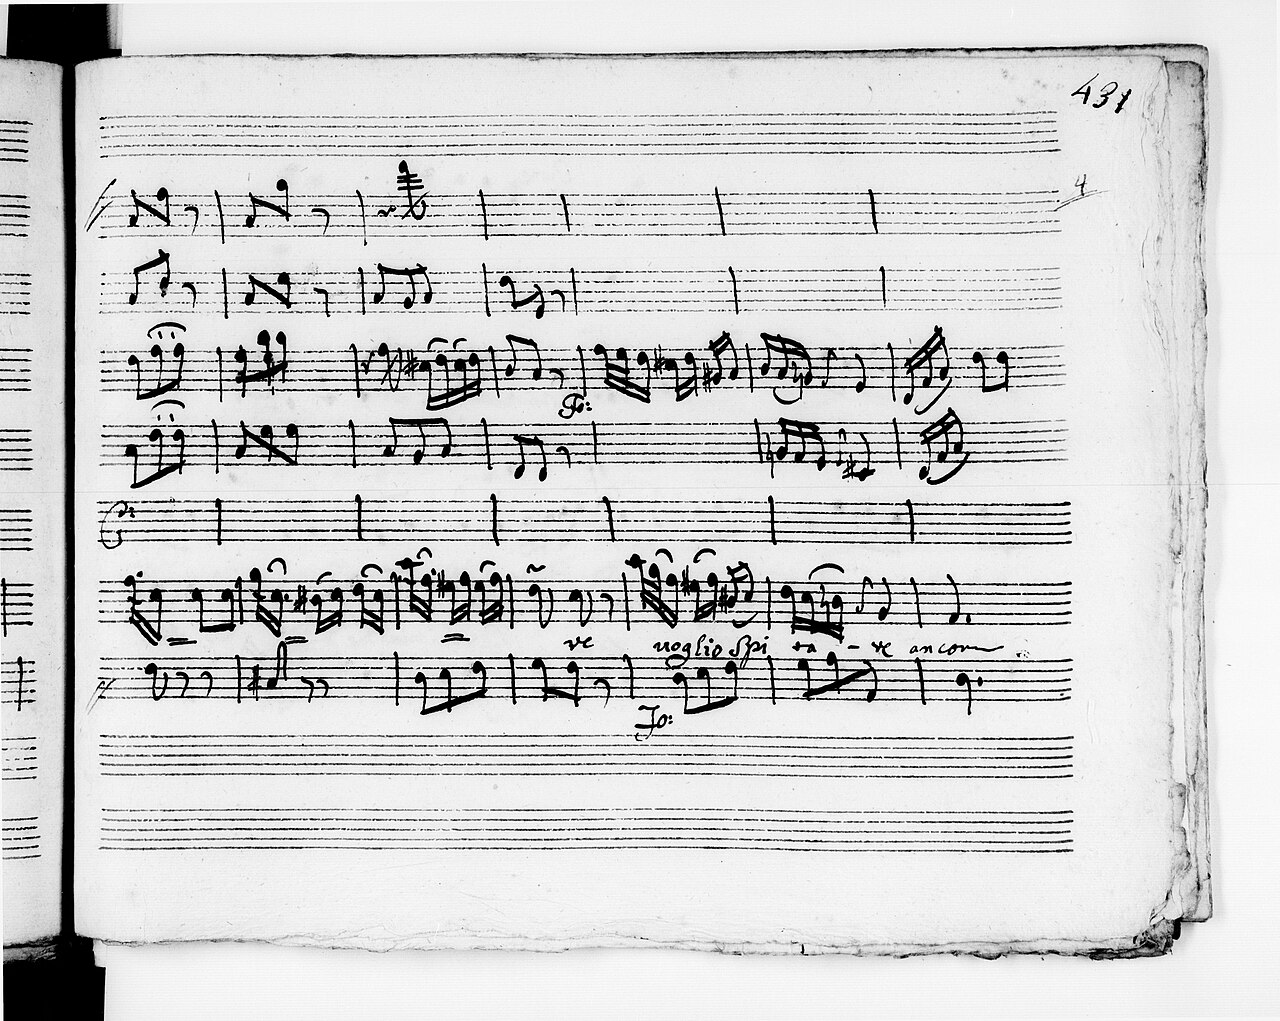 431
4
Po:
ve voglio Spi ra - re ancora
Po: